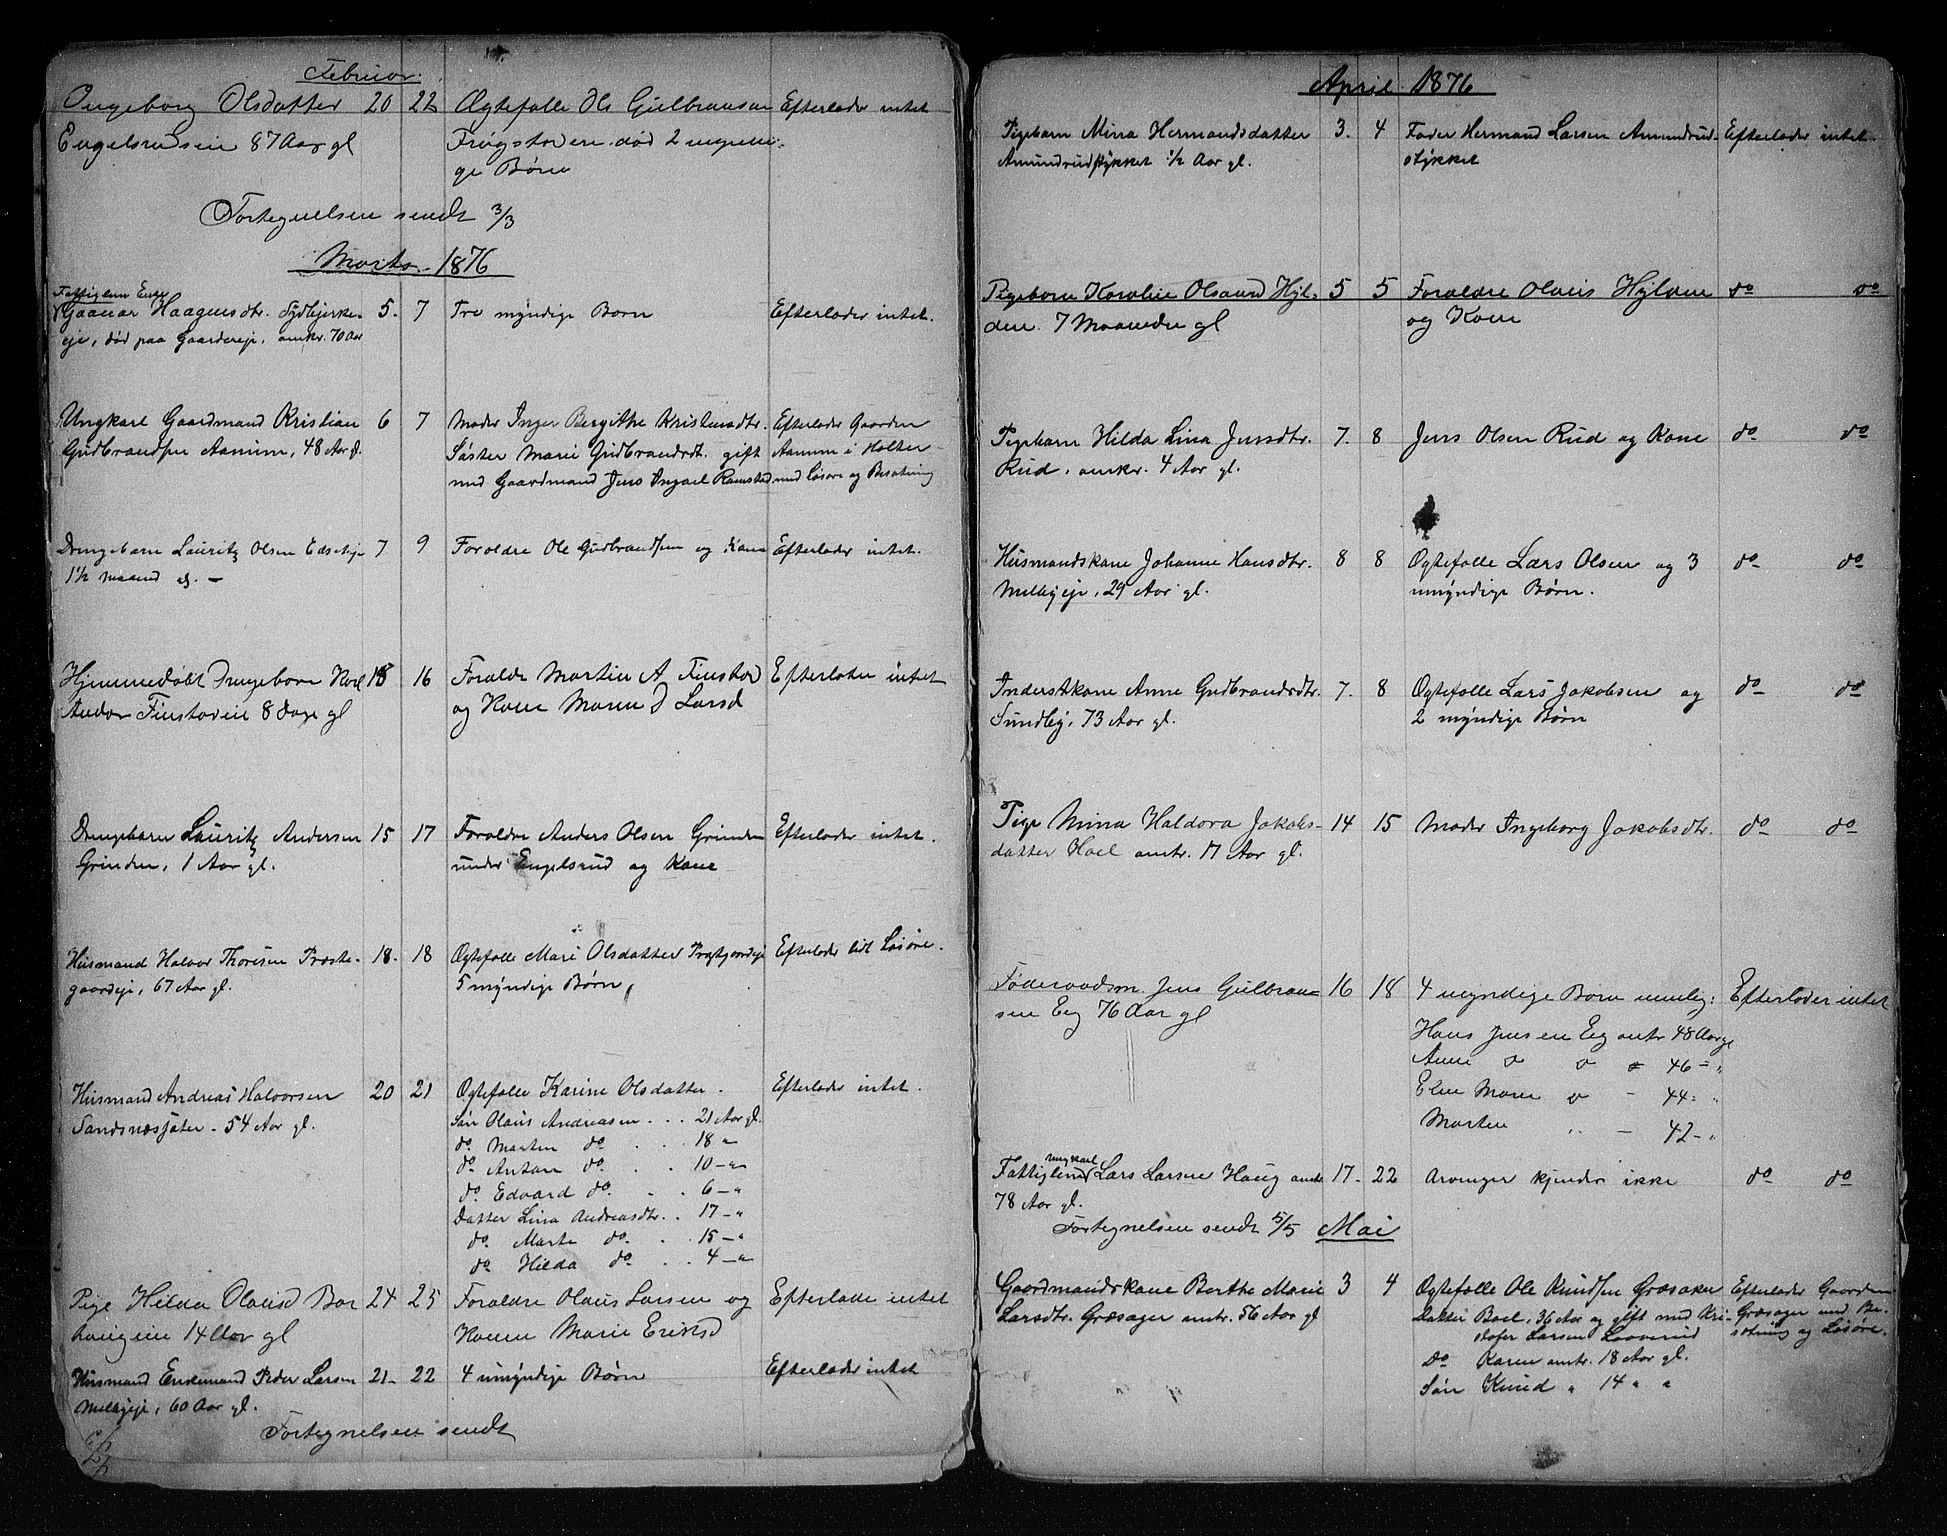 Februar.
Ingeborg Olsdatter 20 22 Ogtefolle Ols Gulbransen Efterlader intet
Engelsrudseie 87 Aar gl Frøgstadeie. død 2 myndi-
ge Børn
Fortegnelsen sendt 3/3
Marts 1876
Fattiglem Enke
Haagensdtr. Sydbjerke- 5. 7 Tre myndige Børn Efterlader intet.
eje, død paa Gaardereje, omkr. 70 Aar
Ungkarl Gaardmand Kristian 6 7 Moder Inger Bergithe Kristensdtr. Efterlader Gaarden
Gudbrandsen Aamum, 48 Aar gl. Søster Marie Gudbrandsdt. gift Aamum i Holter
med Gaardmand Jens Ingael Ramstad med Løsøre og Besætning
Drengebarn Lauritz Olsen Edseteje 7 9 Foroldre Ole Gudbrandsen og Kone Efterlader intet.
1½ maaned gl. –
Hjemmedøbt Drengebarn Karl 15 16 Foroldre Martin A Finstad Efterlader intet
Andor Finstadeie 8 Dage gl og Kone Maren D Larsd
Drengebarn Lauritz Andersen 15 17 Foroldre Anders Olsen Grinden Efterlader intet.
Grinden, 1 Aar gl. under Engelsrud og Kone
Husmand Halvor Thoresen Præste- 18. 18 Ogtefolle Mari Olsdatter Præstgaardseje Efterlader lidt Løsøre.
gaardeje, 67 Aar gl. 5 myndige Børn,
Husmand Andreas Halvorsen 20 21 Ogtefolle Karine Olsdatter. Efterlader intet.
Sandsnæssæter. 54 Aar gl. Søn Olaus Andreasen . . . 21 Aar gl.
do. Martin do. . . 18 "
do. Anton do. . . 10 – "
do. Edvard do. . . 6 – "
Datter Lina Andreasdtr. . . 17 – "
do. Marte do. . . 15 – "
do. Hilda do. . . 4 – "
Pige Hilda Olausd Bar 24 25 Foroldre Olaus Larsen og Efterlade intet
haugeie 14 Aar gl Konen Marie Eriksd
Husmand Enkemand Peder Larsen 21 – 22 4 umyndige Børn Efterlader intet
Melbyeje, 60 Aar gl.
Fortegnelsen sendt
April 1876
Pigebarn Mina Hermandsdatter 3. 4 Fader Hermand Larsen Amundrud- Efterlader intet.
Amundrudstykket ½ Aar gl. stykket
Pigebarn Karoline Olsaasd Hyl- 5 5 Foroldre Olaus Hylden do do
den. 7 Maaneder gl og Kone
Pigebarn Hilda Lina Jensdtr. 7. 8 Jens Olsen Rud og Kone do do
Rud. omkr. 4 Aar gl.
Husmandskone Johanne Hansdtr. 8 8 Ogtefolle Lars Olsen og 3 do do
Melbyeje, 29 Aar gl. umyndige Børn.
Inderstkone Anne Gudbrandsdtr. 7. 8 Ogtefolle Lars Jakobsen og do do
Sundby, 73 Aar gl. 2 myndige Børn
Pige Mina Haldora Jakobs- 14 15 Moder Ingeborg Jakobsdtr. do do
datter Hoel omtr. 17 Aar gl.
Føderaadsm. Jens Gulbran- 16 18 4 myndige Børn nemlig: Efterlader intet
sen Eeg 76 Aar gl Hans Jensen Eeg omtr 48 Aar gl
Anne " " " 46 – "
Elen Marie " – 44 – "
Morten " – 42 – "
ungkarl
Fattiglem Lars Larsen Haug omtr 17. 22 Arvinger kjendes ikke do do
78 Aar gl.
Fortegnelsen sendt 5/5 Mai
Gaardmandskone Berthe Marie 3 4 Ogtefolle Ole Knudsen Græsaker Efterlader Gaarden
Larsdtr. Græsager omtr. 56 Aar gl Datter Boel, 36 Aar og gift med Kri- Græsager med Be-
stofer Larsen Loverud sætning og Løsøre.
Do Karen omtr. 18 Aar gl.
Søn Knud " 14 " "